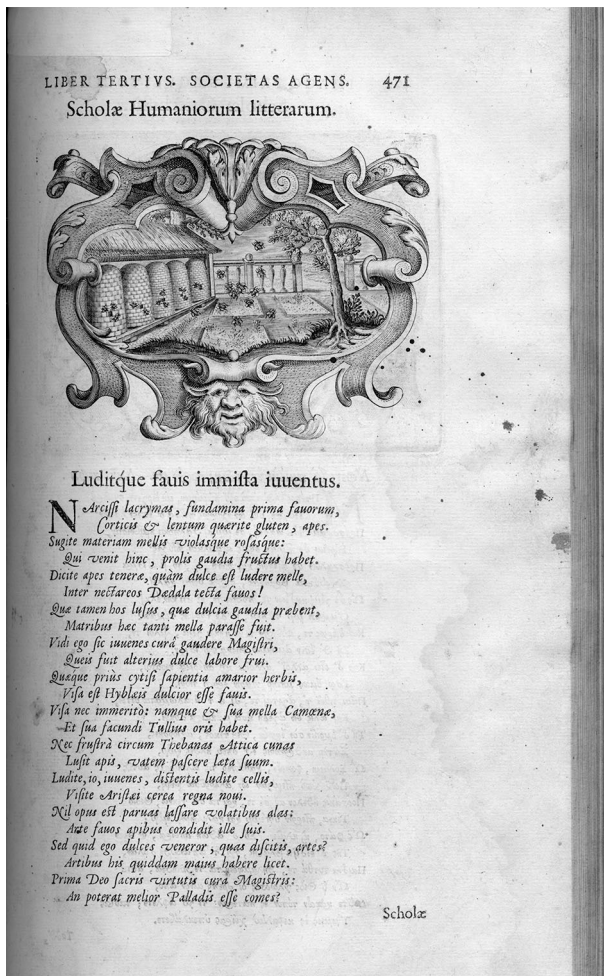 LIBER TERTIVS. SOCIETAS AGENS. 471
Scholæ Humaniorum litterarum.
Luditq́ue fauis immiſta iuuentus.
NArciſſi lacrymas, fundamina prima fauorum,
Corticis & lentum quærite gluten, apes.
Sugite materiam mellis violasque roſasque:
Qui venit hinc, prolis gaudia fructus habet.
Dicite apes teneræ, quàm dulce eſt ludere melle,
Inter nectareos Dædala tecta fauos!
Quæ tamen hos luſus, quæ dulcia gaudia præbent,
Matribus hæc tanti mella paraſſe fuit.
Vidi ego ſic iuuenes curâ gaudere Magiſtri,
Queis fuit alterius dulce labore frui.
Quæque priùs cytiſi ſapientia amarior herbis,
Viſa eſt Hyblæis dulcior eſſe fauis.
Viſa nec immeritò: namque & ſua mella Camœnæ,
Et ſua facundi Tullius oris habet.
Nec fruſtrà circum Thebanas Attica cunas
Luſit apis, vatem paſcere læta ſuum.
Ludite, io, iuuenes, diſtentis ludite cellis,
Viſite Ariſtæi cerea regna noui.
Nil opus eſt paruas laſſare volatibus alas:
Arte fauos apibus condidit ille ſuis.
Sed quid ego dulces veneror, quas diſcitis, artes?
Artibus his quiddam maius habere licet.
Prima Deo ſacris virtutis cura Magiſtris:
An poterat melior Palladis eſſe comes?
Scholæ